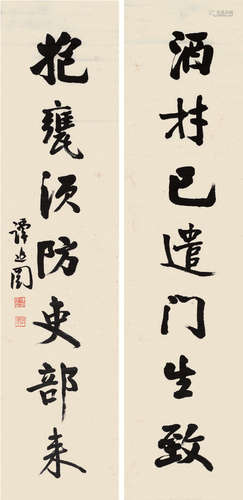 酒材已遣门生致
抱瓮须防吏部来
谭延闿